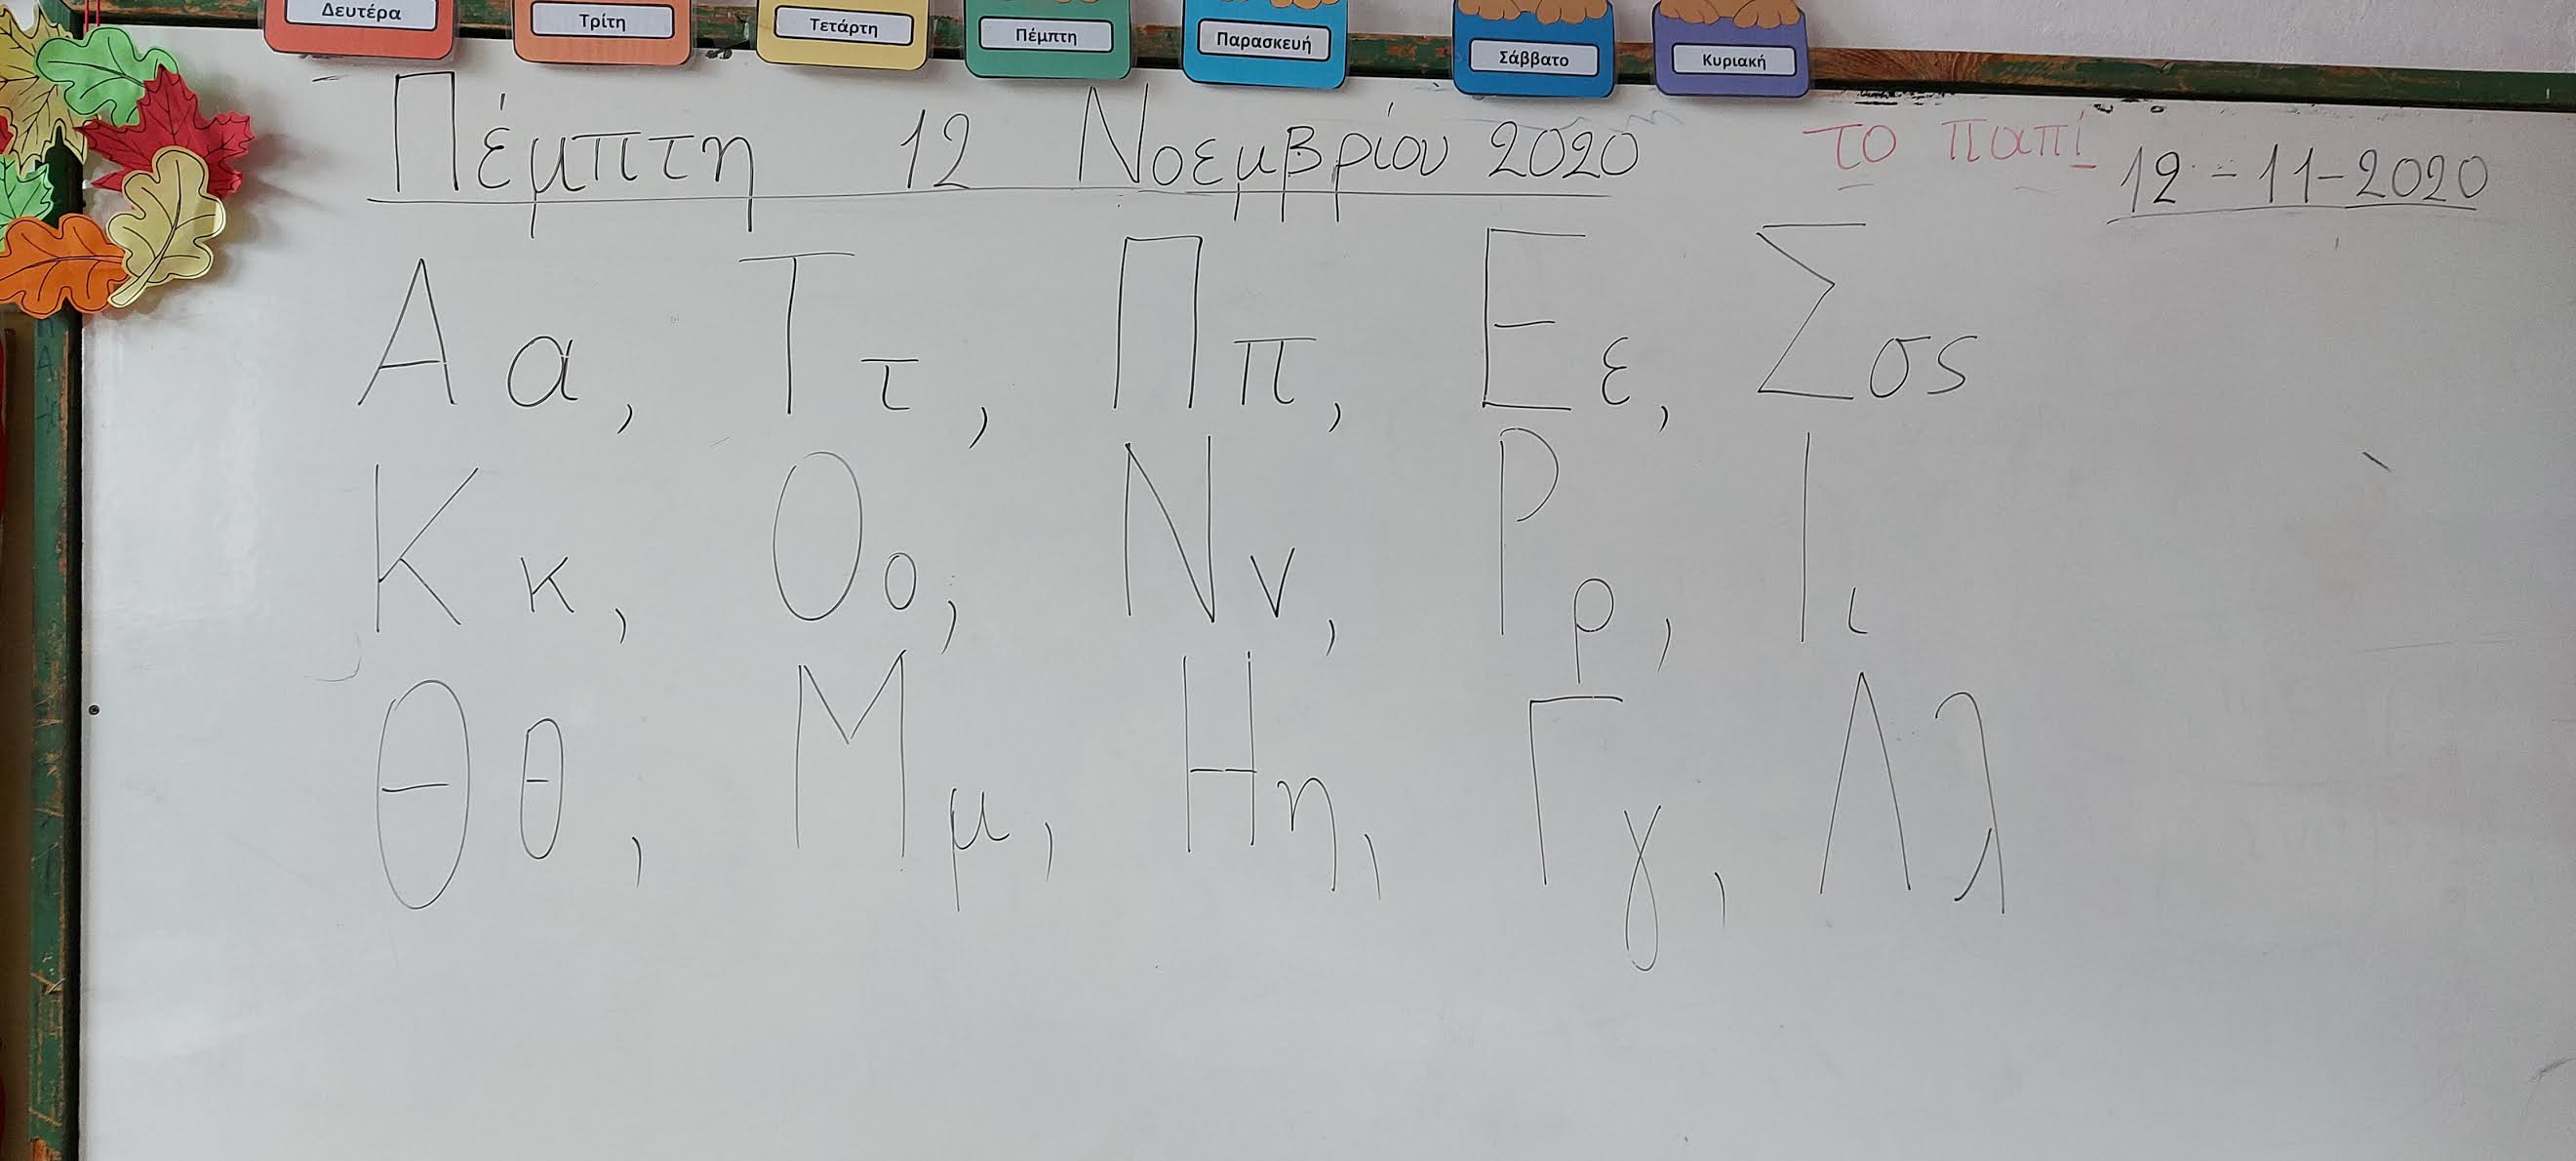 Δευτέρα Τρίτη Τετάρτη Πέμπτη Παρασκευή Σάββατο Κυριακή
Πέμπτη 12 Νοεμβρίου 2020 το παπί 12-11-2020
Α α, Τ τ, Π π, Ε ε, Σ σ ς
Κ κ, Ο ο, Ν ν, Ρ ρ, Ι ι
Θ θ, Μ μ, Η η, Γ γ, Λ λ